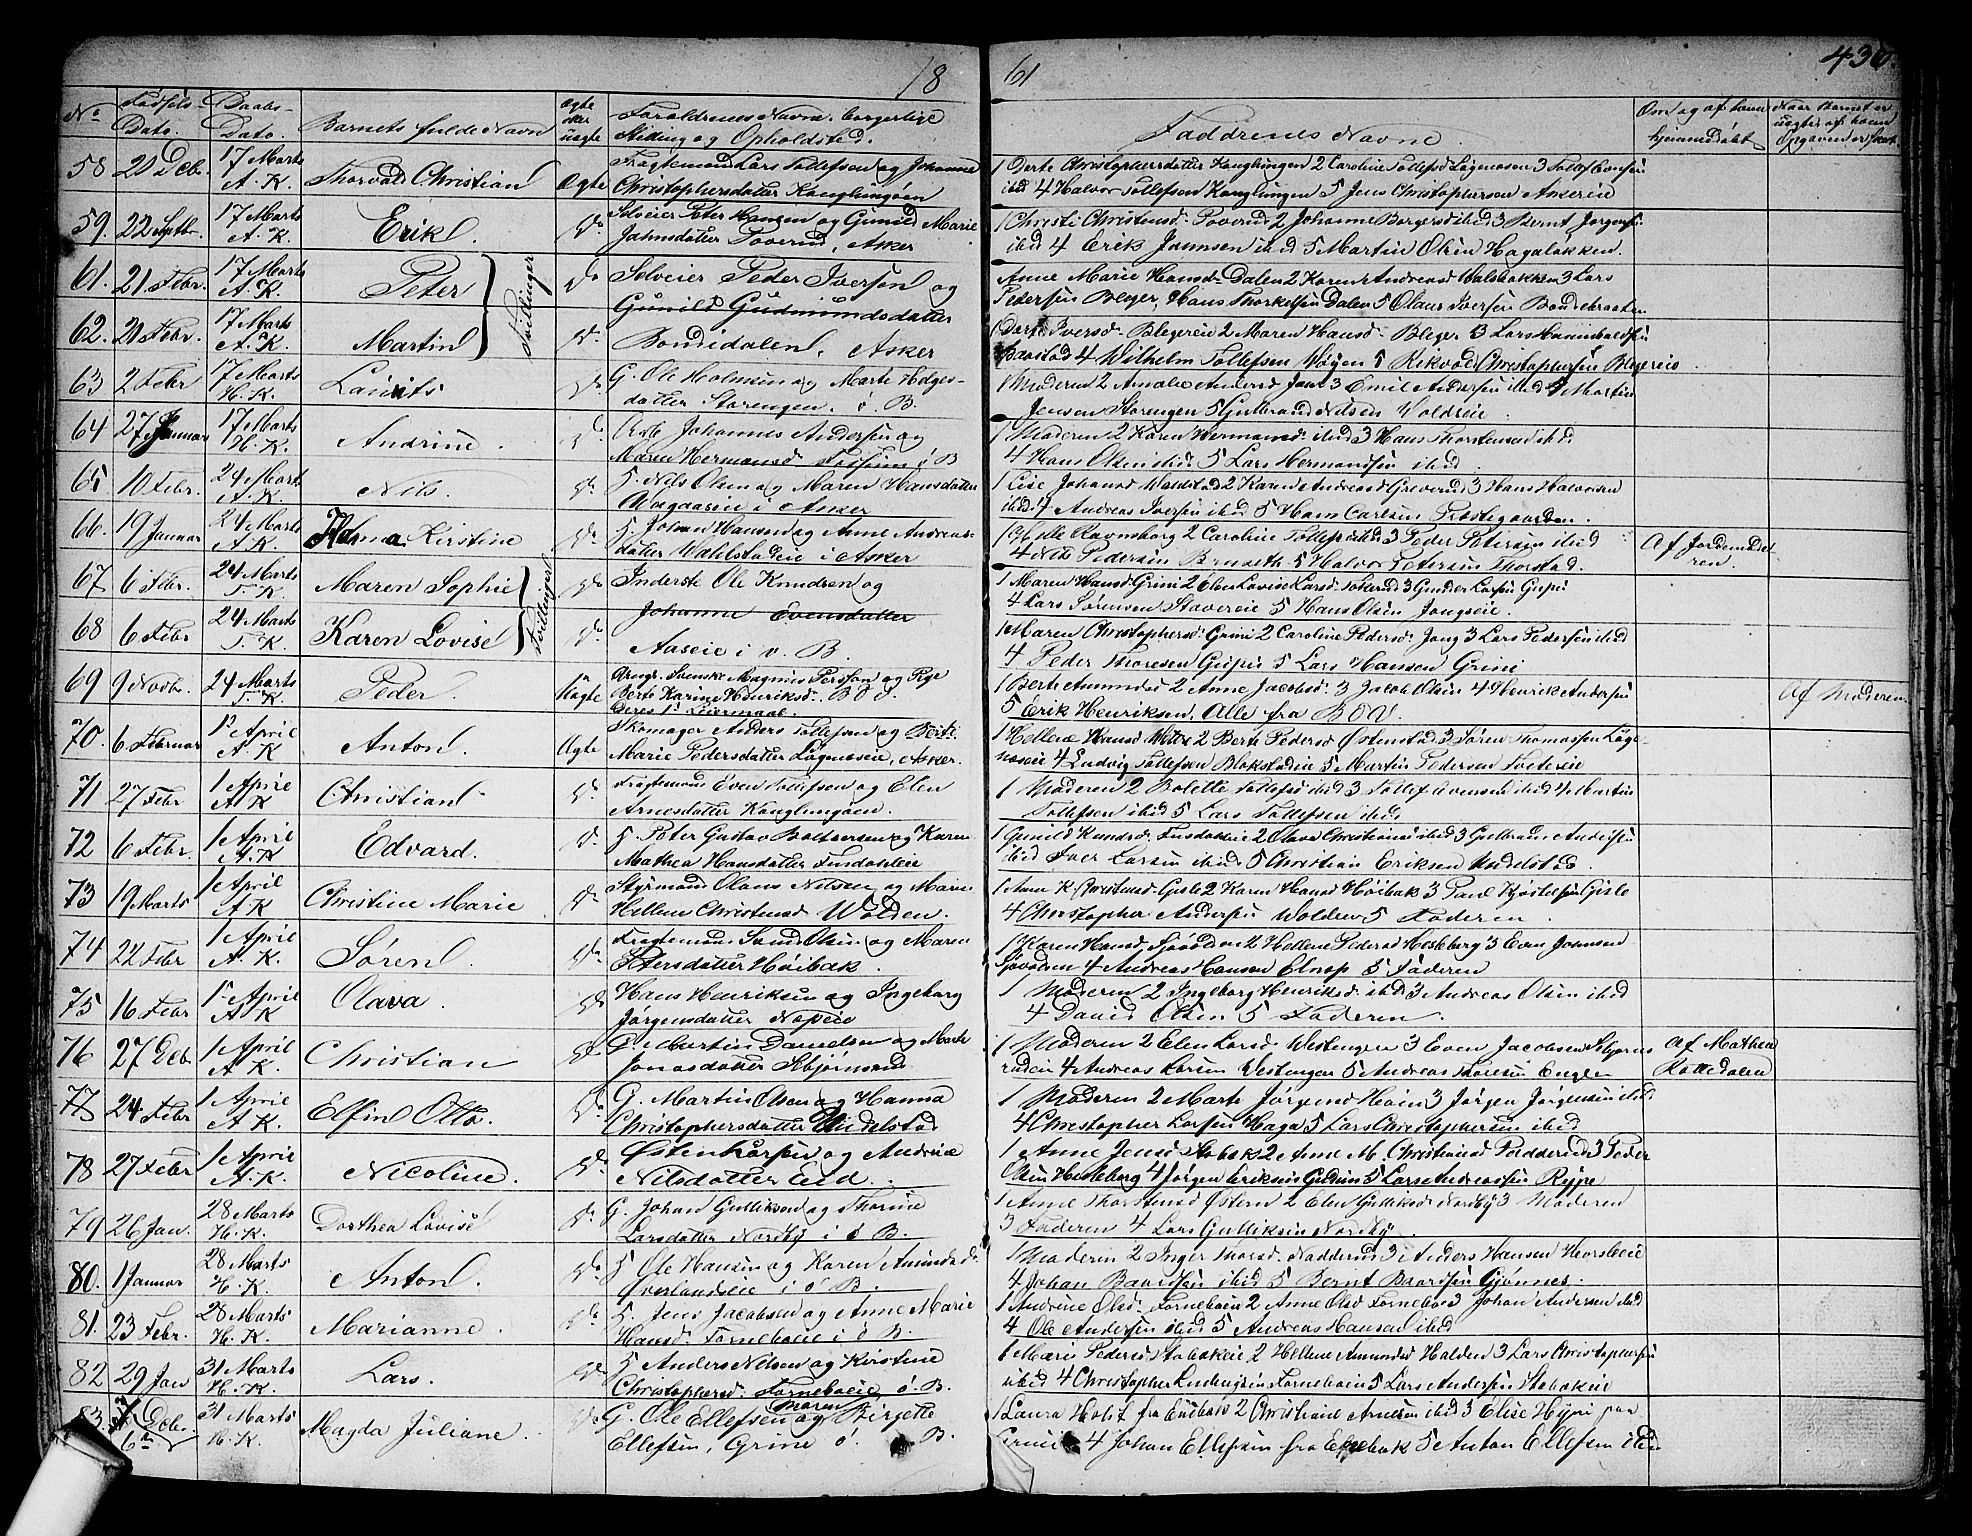 18 61 430.
No Fødsels- Dato. Daabs- Dato. Barnets fulde Navn Ægte eller uægte Forældrenes Navn, borgerlige Stilling og Opholdsted. Faddrenes Navne Om og af hvem hjemmedøbt Naar Barnet er uægte, af hvem Opgaven er skeet
58 20 Deb. 17 Marts A. K. Thorvald Christian Ægte Fragtemand Lars Tollefsen og Johanne
Christophersdatter Konglungøen
1 Dorte Christophersdatter Konglungen 2 Caroline Tollefsd Løgenæsen 3 Tollef
ibid 4 Halvor Tollefsen Konglungen 5 Jens Christophersen Askereie
59. 22 Septbr. 17 Marts A. K. Erik. Do Selveier Peter Hansen og Gunild Marie
Johnsdatter Toverud, Asker
1 Christi Christensd. Toverud 2 Johanne Børgersd ibid 3 Bernt Jørgens
ibid 4 Erik Johnsen ibid 5 Martin Olsen Hagaløkken.
61. 21 Febr. 17 Marts A. K. Peter Tvillinger Do Selveier Peder Iversen og
Gunild Gudmundsdatter
Anne Marie Hansd. Dalen 2 Karen Andreasd Valsbakken 3 Lars
Pedersen Bleger, Hans Thorkelsen Dalen 5 Olaus Iversen Bondebraaten
62. 20 Febr. 17 Marts A. K. Martin Do Bondidalen, Asker
1 Dorte Iversd. Blegereie 2 Maren Hansd. Bleger 3 Lars
4 Wilhelm Tollefsen Wøyen 5 Rikvold Christophersen Blegereie
63 2 Febr 17 Marts H. K. Lauits Do G. Ole Holmsen og Marte Helges-
datter Storengen. ø. B.
1 Moderen 2 Amalie Andersd Jon 3 Emil Andersen ibid 4 Martin
Jensen Storengen 5 Gulbrand Nilsen Woldseie.
64 27 Januar 17 Marts H. K. Andrine. Do Johannes Andersen og
Maren Hermansd. Fossum i B
1 Moderen 2 Karen Hermansd. ibid 3 Hans Thorstensen ibid
4 Hans Olsen ibid. 5 Lars Hermandsen ibid.
65 10 Febr. 24 Marts A. K. Nils. Do S. Nils Olsen og Maren Hansdatter
i Asker
1 Lise Johansd Waldstad 2 Karen Andreasd Greverud 3 Hans Halvorsen
ibid. 4 Andreas Iversen ibid 5 Hans Carlsen Præstegaarden.
66. 19 Januar 24 Marts A. K. Kirstine Do S. Johan Hansen og Anne Andreas-
datter Wahlstadeie i Asker
Ravnsborg 2 Caroline Tollefsd ibid 3 Peder Petersen ibid
4 Nils Pedersen Bruseth 5 Halvor Petersen Thorstad.
Af Jordemoderen.
67. 6 Febr. 24 Marts T. K. Maren Sophie Tvillinger Do Inderste Ole Knudsen og
Johanne Evensdatter
1 Maren Hansd. Grini 2 Elen Lovise Larsd. Tokerud 3 Gunder Larsen Gupu
4 Lars Sørensen Stovereie 5 Hans Olsen Jongseie.
68 6 Febr 24 Marts T. K. Karen Lovise Do Aaseie i v. B.
1 Maren Christophersd. Grini 2 Caroline Pedersd. Jong 3 Lars Pedersen ibid
4 Peder Thoresen Gupu 5 Lars Hansen Grini
69 9 Novbr. 24 Marts T. K. Peder. Uægte Svenske Magnus Persson og Pige
Berte Karine Henriksd.
deres 1ste Leiermaal.
1 Berte Amundsd 2 Anne Jacobsd. 3 Jacob Olsen 4 Henrik Andersen
5 Erik Henriksen. Alle fra
Af Moderen
70. 6 Februar 1 April A. K Anton Ægte Skomager Anders Tollefsen og Berte
Marie Pedersdatter Løgenæseie, Asker.
1 Hellene Hansd Wettre 2 Berte Pedersd Østenstad 3 Søren Thomassen Løge-
næseie 4 Ludvig Tollefsen Blakstadeie 5 Martin Pedersen
71 27 Febr 1 April A. K Christian Do Fragtemand Even Tollefsen og Elen
Arnesdatter Konglungøen.
1 Moderen 2 Bolette Tollefsd ibid 3 Tollef Evensen ibid 4 Martin
Tollefsen ibid 5 Lars Tollefsen ibid
72 6 Febr. 1 April A. K Edvard. Do S. Peter Gustav Baltsersen og Karen
Mathea Hansdatter
1 Gunild Knudsd. 2 Olava Christiansd ibid 3 Gulbrand Andersen
ibid Iver Larsen ibid 5 Christian Eriksen Undelstad.
73 19 Marts 1 April A. K Christine Marie Do Styrmand Olaus Nilsen og Maren
Hellene Christensd Wolden.
1 Anne K. Christensd. Gisle 2 Karen Hansd Høibak 3 Paul Kjostelsen Gisle
4 Christopher Andersen Wolden 5 Faderen.
74 22 Febr 1 April A. K. Søren Do Fragtemand Olsen og Maren
Petersdatter Høibak.
1 Karen Hansd. Sjøvolden 2 Hellene Pedersd Hesleberg 3 Even Johnsen
Sjøvolden 4 Andreas Hansen Elnæs 5 Faderen
75 16 Febr 1 April A. K Olava. Do Hans Henriksen og Ingeborg
Jørgensdatter Næseie
1 Moderen 2 Ingeborg Henriksd. ibid 3 Andreas Olsen ibid
4 David Olsen 5 Faderen.
76 27 Deb. 1 April A. K. Christian Do G. Martin Danielsen og Marte
Jonasdatter
1 Moderen 2 Elen Larsd. Westengen 3 Even Jacobsen
4 Andreas Larsen Westengen 5 Andreas Thoresen
Af Mathea
77 24 Febr 1 April A. K. Elfin Otto. Do G. Martin Olsen og Hanna
Christophersdatter Undelstad
1 Moderen 2 Marte Jørgensd Hoin 3 Jørgen Jørgensen ibid
4 Christopher Larsen Haga 5 Lars Christophersen ibid
78 27 Febr 1 April A. K. Nicoline. Do Østen Larsen og Andrine
Nilsdatter Eid.
1 Anne Jensd 2 Anne M. Christiansd 3 Peder
Olsen Hesleberg 4 Jørgen Eriksen 5 Lars Andreassen
79 26 Jan. 28 Marts H. K. Dorthea Lovise Do G. Johan Gulliksen og Thorine
Larsdatter Nordby i ø B.
1 Anne Thorstensd Østern 2 Elen Gulliksd Nordby 3 Moderen
3 Faderen 4 Lars Gulliksen Nordby.
80. 1 Januar 28 Marts H. K. Anton. Do S Ole Hansen og Karen Amundsd.
Øverlandseie i ø B.
1 Moderen 2 Inger Thorsd. Nadderud 3 Anders Hansen
4 Johan Baardsen ibid 5 Bernt Baardsen Gjønnes.
81. 23 Febr. 28 Marts H. K. Marianne. Do S. Jens Jacobsen og Anne Marie
Hansd. Forneboeie i ø B.
1 Andrine Olsd. Forneboeie 2 Anne Olsd Fornebo 3 Johan Andersen ibid
4 Ole Andersen ibid 5 Andreas Hansen ibid
82 29 Jan 31 Marts H. K. Lars. Do S Anders Nilsen og Kirstine
Christophersd. Forneboeie ø. B.
1 Maren Pedersd. Stabækeie 2 Hellene Amundsd Holden 3 Lars Christophersen
ibid 4 Christopher Ludvigsen Forneboeie 5 Lars Andersen Stabækeie
83. Deb. 31 Marts H. K. Magda Juliane. Do G. Ole Ellefsen og Maren Birgette
Ellefsen, Grine ø. B.
1 Laura Holst fra Enebak 2 Christiane Arnesen ibid 3 Elise paa
Grini 4 Johan Ellefsen fra Enebak 5 Anton Ellefsen ibid